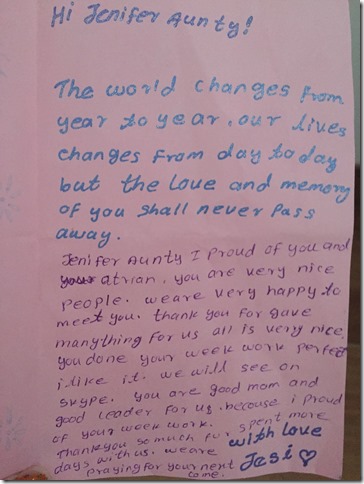 Hi Jenifer Aunty!
The world changes from
year to year. our lives
changes from day to day
but the Love and memory
of you shall never pass
away.
Jenifer Aunty I proud of you and
atrian. you are very nice
people. we are very happy to
meet you. thank you for gave
manything for us all is very nice.
you done your week work perfect
i like it. we will see on
skype. you are good mom and
good leader for us. because i proud
of your week work. spent more
Thankyou so much for
days with us. we are
praying for your next
come.
with love
Jesi ♡